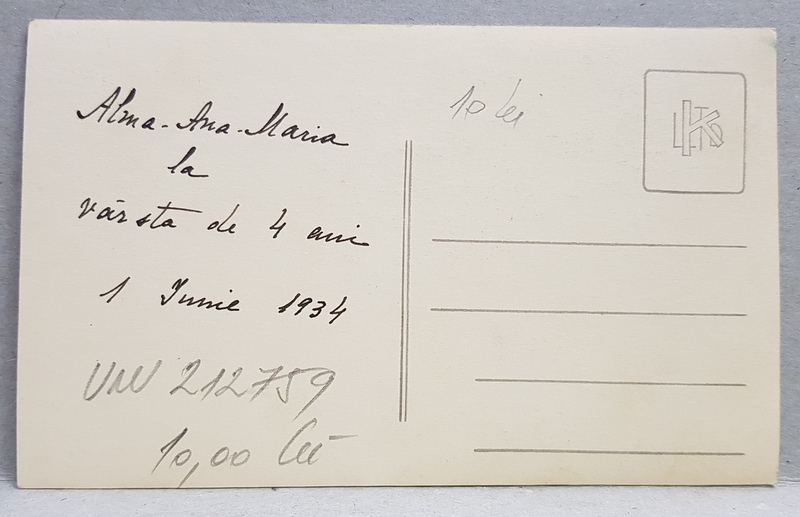 Alma-Ana-Maria
la
vârsta de 4 ani
1 Iunie 1934
212759
10,00 Lei
10 lei